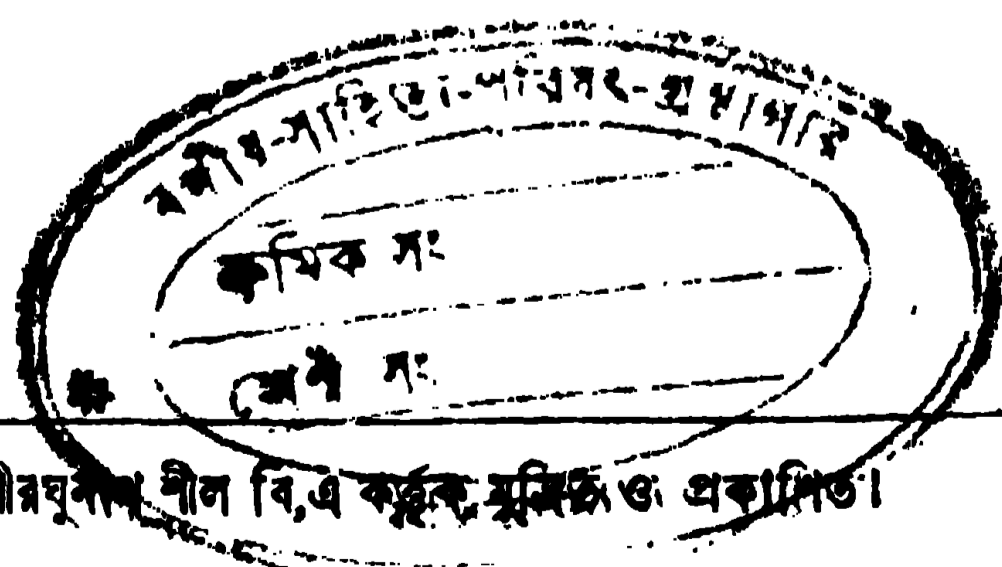 বঙ্গীয়-সাহিত্য-পরিষৎ-গ্রন্থাগার
ক্রমিক সং
শ্রেণী সং
শীল বি,এ কর্ত্তৃক মুদ্রিত ও প্রকাশিত।